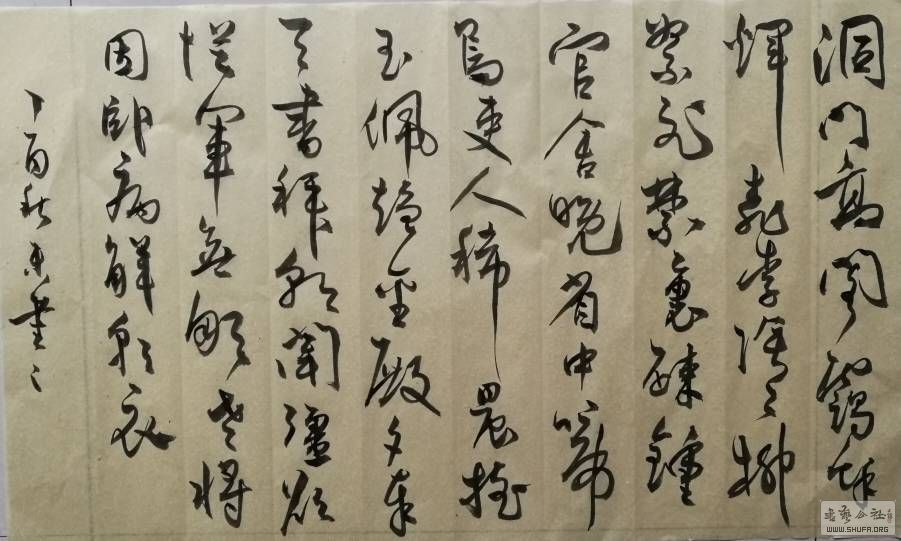 洞門高閣靄餘
輝桃李陰々柳
絮飛禁裏疎鐘
官舍晚省中啼
鳥吏人稀晨搖
玉佩趨金殿夕奉
天書拜瑣闈彊欲
從軍無那老將
因卧病解朝衣
丁酉秋書
WWW.SHUFA.ORG